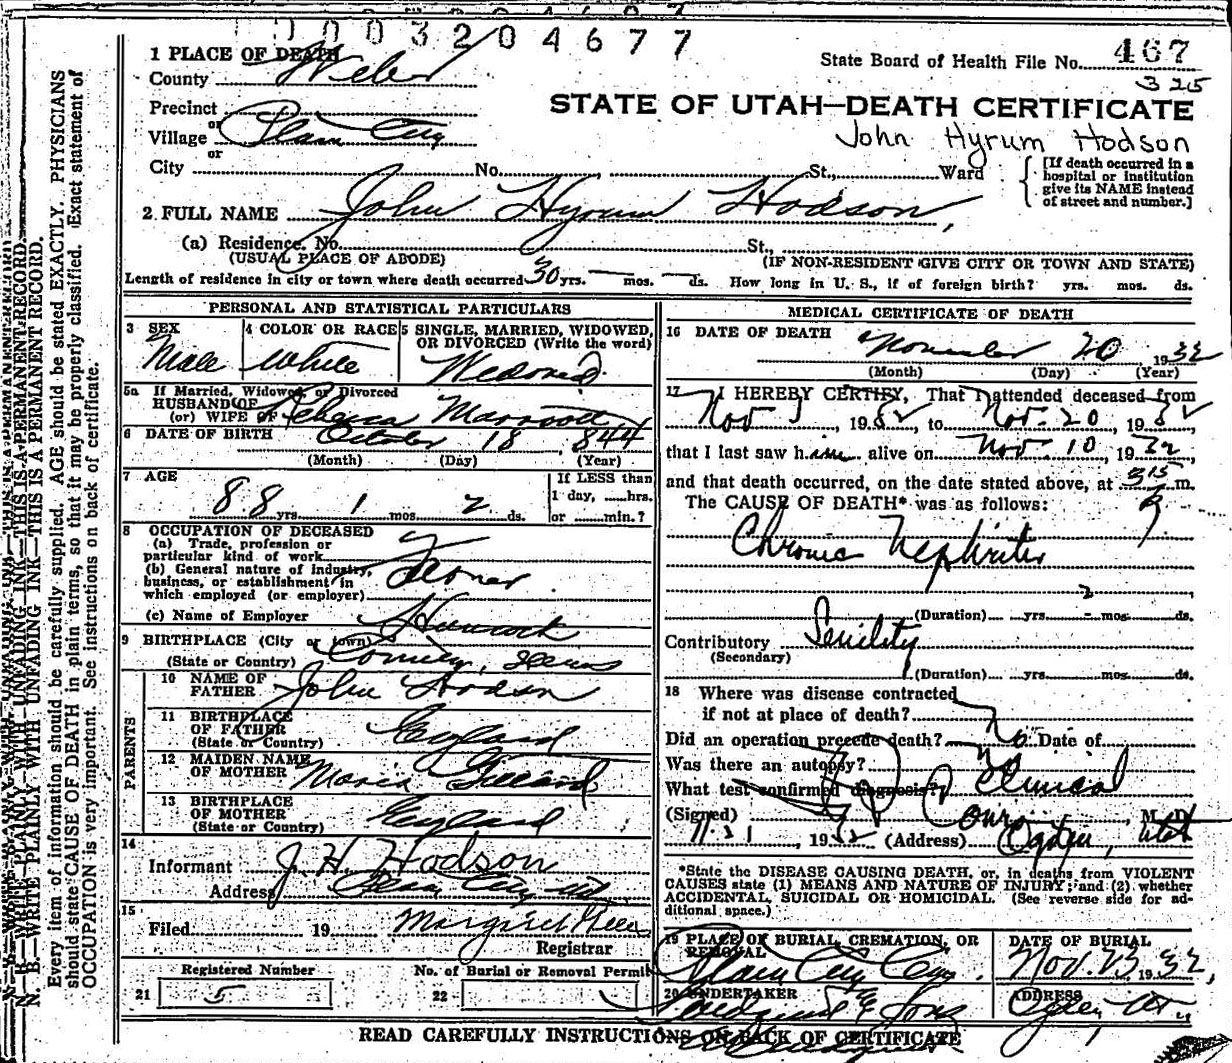 1003204677
1 PLACE OF DEATH
County Weber
State Board of Health File No. 467
325
Precinct
or
Village Plain City
STATE OF UTAH—DEATH CERTIFICATE
John Hyrum Hodson
or
City No. St., Ward
[If death occurred in a
hospital or institution
give its NAME instead
of street and number.]
2. FULL NAME John Hyrum Hodson,
(a) Residence. No. St.,
(USUAL PLACE OF ABODE) (IF NON-RESIDENT GIVE CITY OR TOWN AND STATE)
Length of residence in city or town where death occurred 30 yrs. — mos. — ds. How long in U. S., if of foreign birth? yrs. mos. ds.
PERSONAL AND STATISTICAL PARTICULARS
3 SEX
Male
4 COLOR OR RACE
White
5 SINGLE, MARRIED, WIDOWED,
OR DIVORCED (Write the word)
5a If Married, Widowed, or Divorced
HUSBAND OF
(or) WIFE OF Rebecca Marriott
6 DATE OF BIRTH October 18, 844
(Month) (Day) (Year)
7 AGE
88 yrs. 1 mos. 2 ds.
If LESS than
1 day, hrs.
or min.?
8 OCCUPATION OF DECEASED
(a) Trade, profession or
particular kind of work
(b) General nature of industry,
business, or establishment in
which employed (or employer)
(c) Name of Employer
9 BIRTHPLACE (City or town) Hancock
(State or Country) County, Illinois
PARENTS
10 NAME OF
FATHER John Hodson
11 BIRTHPLACE
OF FATHER
(State or Country) England
12 MAIDEN NAME
OF MOTHER Maria
13 BIRTHPLACE
OF MOTHER
(State or Country) England
14
Informant J. H. Hodson
Address Plain City Ut
15
Filed 19
Registrar
Registered Number
21 5
No. of Burial or Removal Permit
22
MEDICAL CERTIFICATE OF DEATH
16 DATE OF DEATH
November 20 1932
(Month) (Day) (Year)
17 I HEREBY CERTIFY, That I attended deceased from
Nov , 1932, to Nov. 20 1932
that I last saw him alive on Nov. 10, 1932,
and that death occurred, on the date stated above, at 315 m.
The CAUSE OF DEATH* was as follows:
Chronic Nephritis
2
(Duration) yrs. - mos. ds.
Contributory Senility
(Secondary)
(Duration) yrs. mos. ds.
18 Where was disease contracted
if not at place of death?
Did an operation precede death? No Date of
Was there an autopsy?
What test confirmed diagnosis? Clinical
(Signed) , M. D.
11.21, 1932 (Address) Ogden, Utah
*State the DISEASE CAUSING DEATH, or, in deaths from VIOLENT
CAUSES state (1) MEANS AND NATURE OF INJURY; and (2) whether
ACCIDENTAL, SUICIDAL OR HOMICIDAL. (See reverse side for ad-
ditional space.)
19 PLACE OF BURIAL, CREMATION, OR
REMOVAL
Plain City Cem.
DATE OF BURIAL
Nov. 23 1932,
20 UNDERTAKER
& Sons
ADDRESS
Ogden, Ut.,
READ CAREFULLY INSTRUCTIONS ON BACK OF CERTIFICATE
N. B.—WRITE PLAINLY WITH UNFADING INK—THIS IS A PERMANENT RECORD.
Every item of information should be carefully supplied. AGE should be stated EXACTLY. PHYSICIANS
should state CAUSE OF DEATH in plain terms, so that it may be properly classified. Exact statement of
OCCUPATION is very important. See instructions on back of certificate.